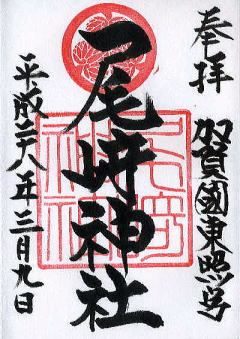 奉拝
加賀國東照宮
尾崎神社
平成二十八年三月九日